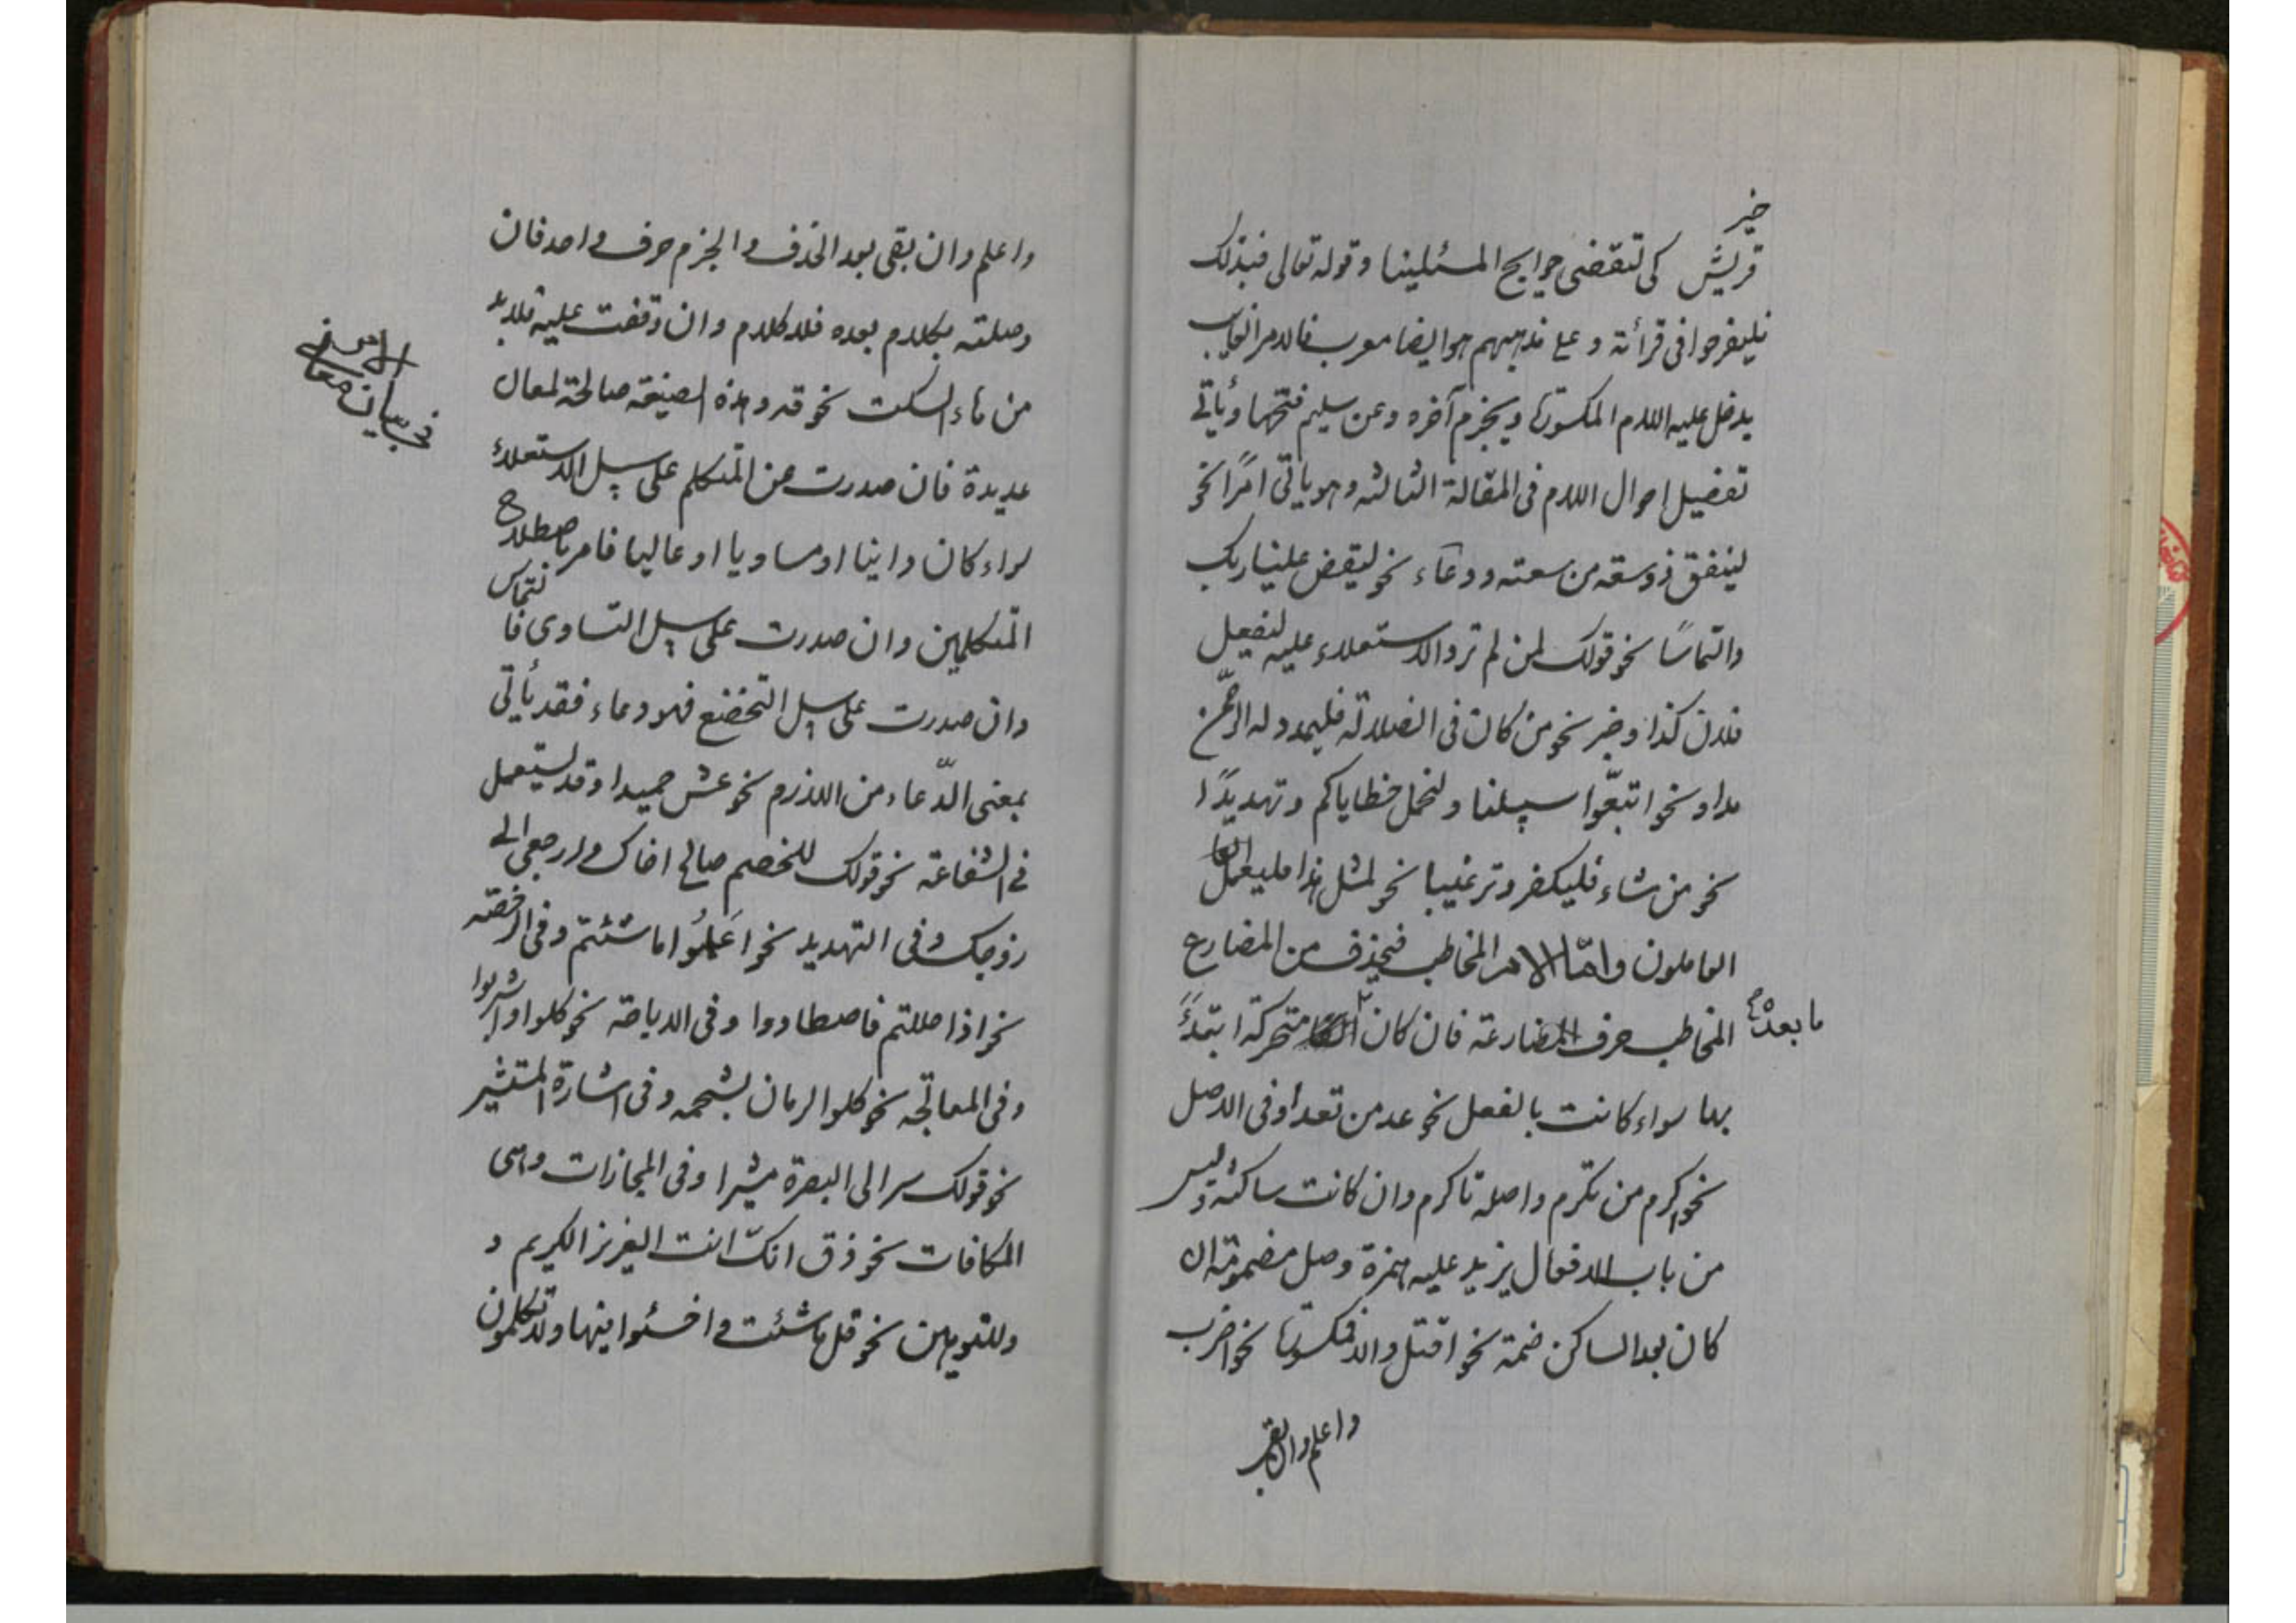 خير
قريش كى لتقضى حوايج المسئلينا وقوله تعالى فبذلك
فليفرحوا فى قرأته وعلى مذهبهم هو ايضا معرب فالامر الغايب
يدخل عليه اللام المكسورة ويجزم آخره وعن سليم فتحها ويأتى
تفضيل احوال اللام فى المقالة الثالثه وهو ياتى امرًا نحو
لينفق ذو سعة من سعته ودعاء نحو ليقض علينا ربك
والتماسًا نحو قولك لمن لم ترد الاستعلاء عليه ليفعل
فلان كذا وخبر نحو من كان فى الضلالة فليمدد له الرحمن
مدا ونحو اتبعّوا سبيلنا ولنحمل خطاياكم وتهديدًا
نحو من شاء فليكفر وترغيبا نحو لمثل هذا فليعمل
العاملون وامّا الامر المخاطب فيحذف من المضارع
المخاطب حرف المضارعة فان كان متحركة ابتدءً
ما بعده
بها سواء كانت بالفعل نحو عد من تعد او فى الاصل
نحو اكرم من تكرم واصله تاكرم وان كانت ساكنة وليس
من باب الافعال يزيد عليه همزة وصل مضمومة ان
كان بعد الساكن ضمة نحو اقتل والا فمكسورة نحو اضرب
واعلم وان بقى
واعلم وان بقى بعد الحذف والجزم حرف واحد فان
وصلته بكلام بعده فلا كلام وان وقفت عليه فلابد
من هاء السكت نحو قه وهذه الصيغة صالحة لمعان
الامر
فى بيان معانى
عديدة فان صدرت من المتكلم على سبيل الاستعلاء
سواء كان دانيا او مساويا او عاليا فامر باصطلاح
المتكلمين وان صدرت على سبيل التساوى فا
لتماس
وان صدرت على سبيل التخضع فهو دعاء فقد يأتى
بمعنى الدّعاء من اللازم نحو عش حميدا وقد يستعمل
فى الشفاعة نحو قولك للخصم صالح اخاك وارجعى الى
زوجك وفى التهديد نحو اعملُوا ما شئتم وفى الرخصة
نحو اذا حللتم فاصطادوا وفى الاباحة نحو كلوا واشربوا
وفى المعالجة نحو كلوا الرمان بشحمه وفى اشارة المستشير
نحو قولك سر الى البصرة مشيرا وفى المجازات وهى
المكافات نحو ذق انكّ انت العزيز الكريم و
وللتوهين نحو قل ما شئت واخسئوا فيها ولا تكلمون